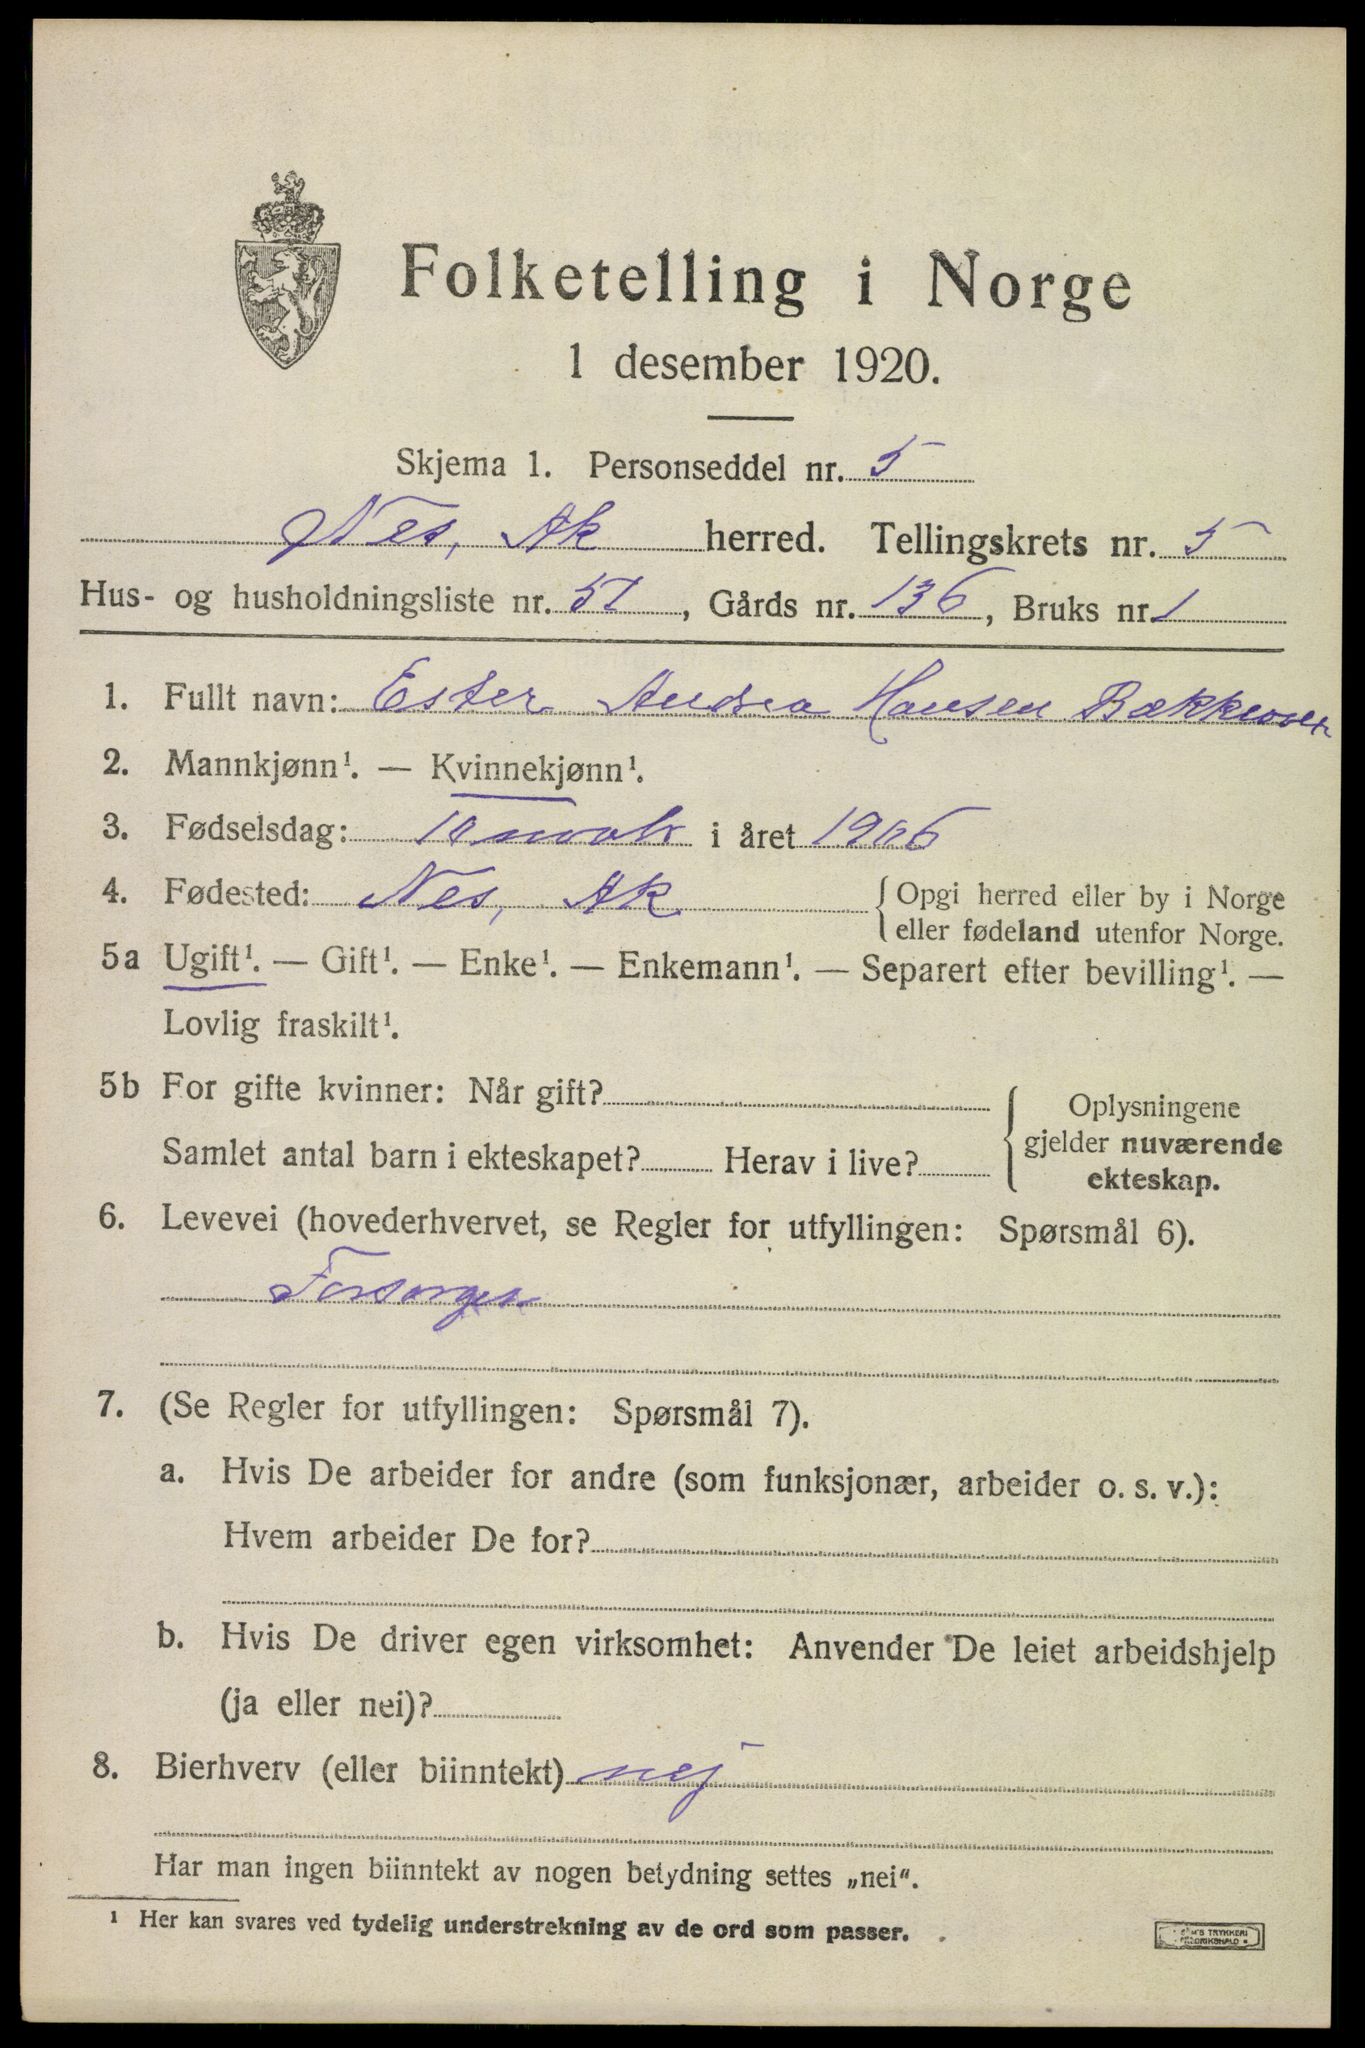 Folketelling i Norge
1 desember 1920.
Skjema 1. Personseddel nr. 5
Nes, Ak herred. Tellingskrets nr. 5
Hus- og husholdningsliste nr. 51, Gårds nr. 136, Bruks nr. 1
1. Fullt navn: Ester Andrea Hansen
2. Mannkjønn¹. — Kvinnekjønn¹.
3. Fødselsdag: 10 i året 1906
4. Fødested: Nes, Ak { Opgi herred eller by i Norge
eller fødeland utenfor Norge.
5a Ugift¹. — Gift¹. — Enke¹. — Enkemann¹. — Separert efter bevilling¹. —
Lovlig fraskilt¹.
5b For gifte kvinner: Når gift?
Samlet antal barn i ekteskapet? Herav i live?
Oplysningene
gjelder nuværende
ekteskap.
6. Levevei (hovederhvervet, se Regler for utfyllingen: Spørsmål 6).
Forsorges
7. (Se Regler for utfyllingen: Spørsmål 7).
a. Hvis De arbeider for andre (som funksjonær, arbeider o. s. v.):
Hvem arbeider De for?
b. Hvis De driver egen virksomhet: Anvender De leiet arbeidshjelp
(ja eller nei)?
8. Bierhverv (eller biinntekt) nej
Har man ingen biinntekt av nogen betydning settes „nei".
¹ Her kan svares ved tydelig understrekning av de ord som passer.
TRYKKERI